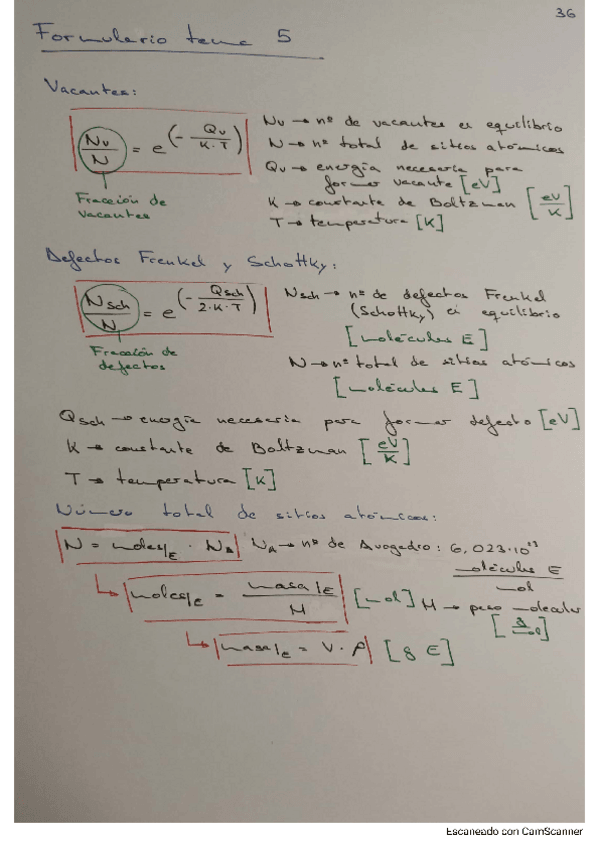 36
Formulario tema 5
Vacantes:
Nv/N = e^(- Qv/K·T)
Fracción de vacantes
Nv → nº de vacantes en equilibrio
N → nº total de sitios atómicos
Qv → energía necesaria para
formar vacante [eV]
K → constante de Boltzman [eV/K]
T → temperatura [K]
Defectos Frenkel y Schottky:
Nsch/N = e^(- Qsch/2·K·T)
Fracción de defectos
Nsch → nº de defectos Frenkel
(Schottky) en equilibrio
[moléculas E]
N → nº total de sitios atómicos
[moléculas E]
Qsch → energía necesaria para formar defecto [eV]
K → constante de Boltzman [eV/K]
T → temperatura [K]
Número total de sitios atómicos:
N = moles/E · NA NA → nº de Avogadro: 6,023·10²³ moléculas E/mol
moles/E = masa/E / M [mol] M → peso molecular [g/mol]
masa/E = V·ρ [g E]
Escaneado con CamScanner